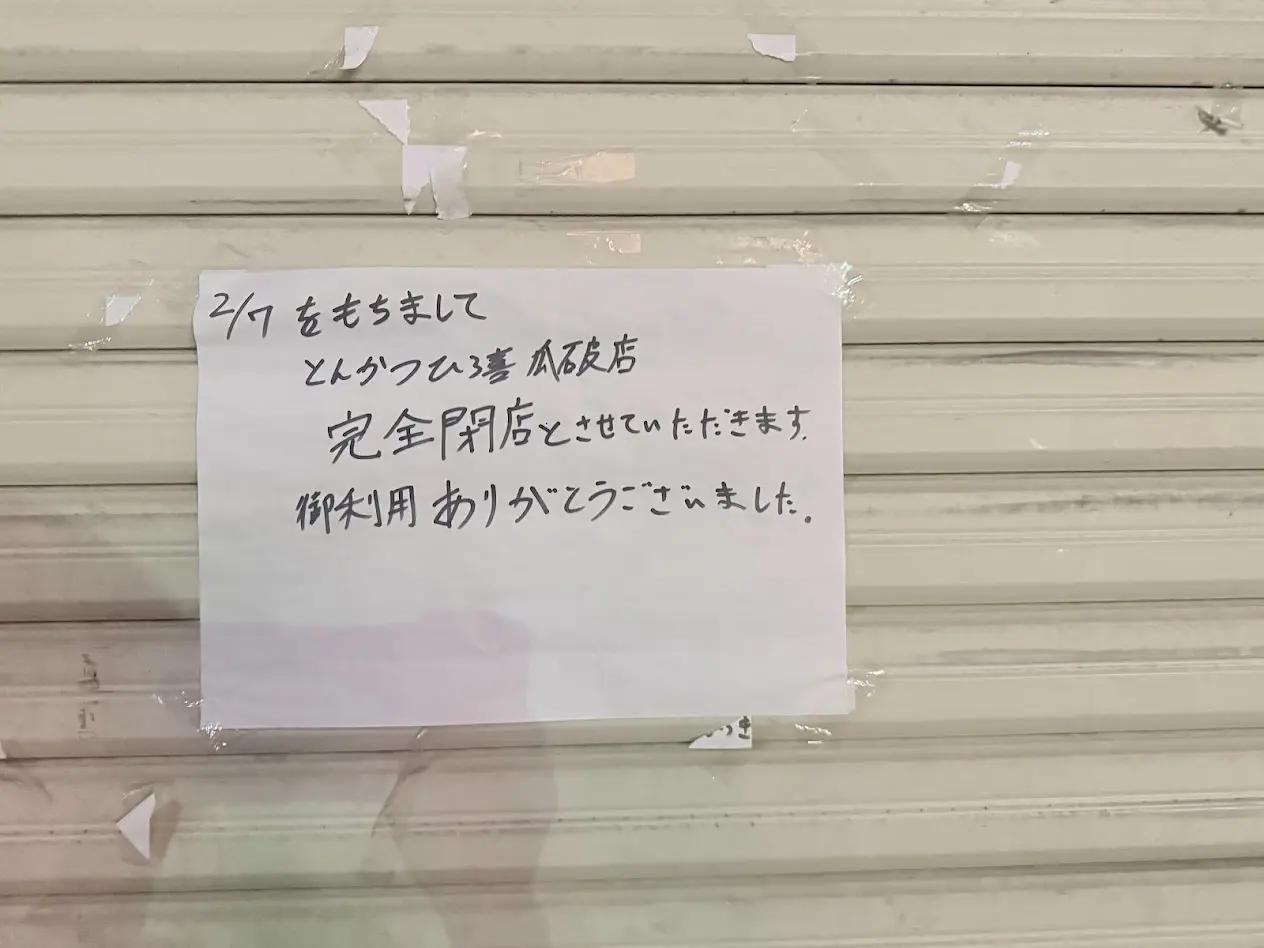 2/7 をもちまして
とんかつひろ喜 瓜破店
完全閉店とさせていただきます.
御利用 ありがとうございました.